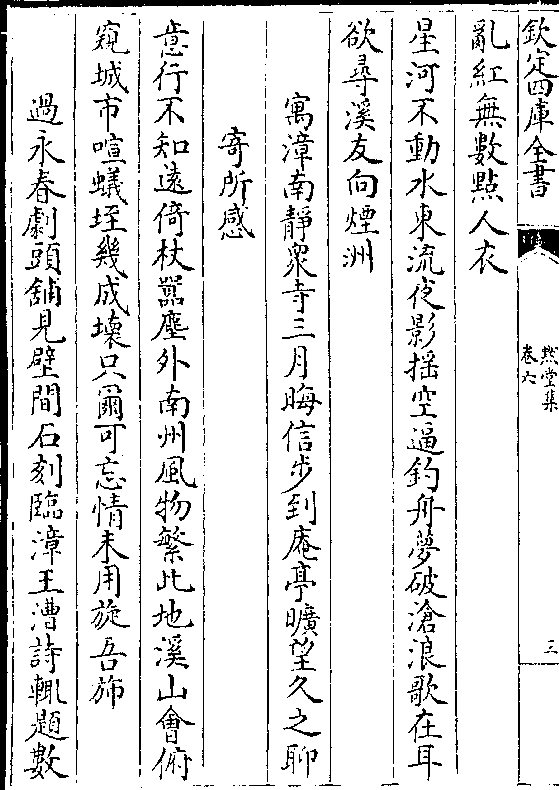 欽定四庫全書
然堂集
卷六
三
亂紅無數點人衣
星河不動水東流夜影揺空逼釣舟夢破滄浪歌在耳
欲尋溪友向煙洲
寓漳南靜衆寺三月晦信步到庵亭曠望久之聊
寄所感
意行不知遠倚杖囂塵外南州風物繁此地溪山會俯
窺城市喧蟻垤幾成壊只爾可忘情未用旋吾斾
過永春劇頭舖見壁間石刻臨漳王漕詩輒題數